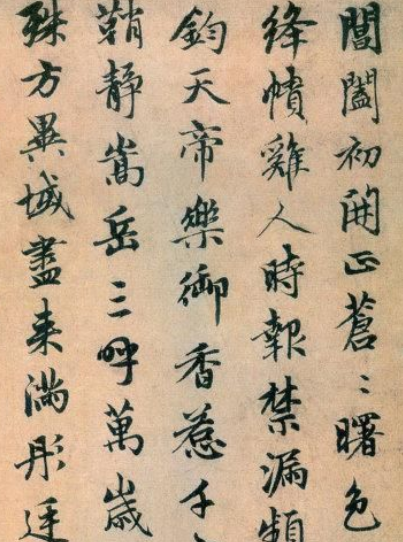 閶闔初開正蒼〻曙色
絳幘雞人時報禁漏頻
鈞天帝樂御香惹千
鞘靜嵩岳三呼萬歲
殊方異域盡来滿彤廷